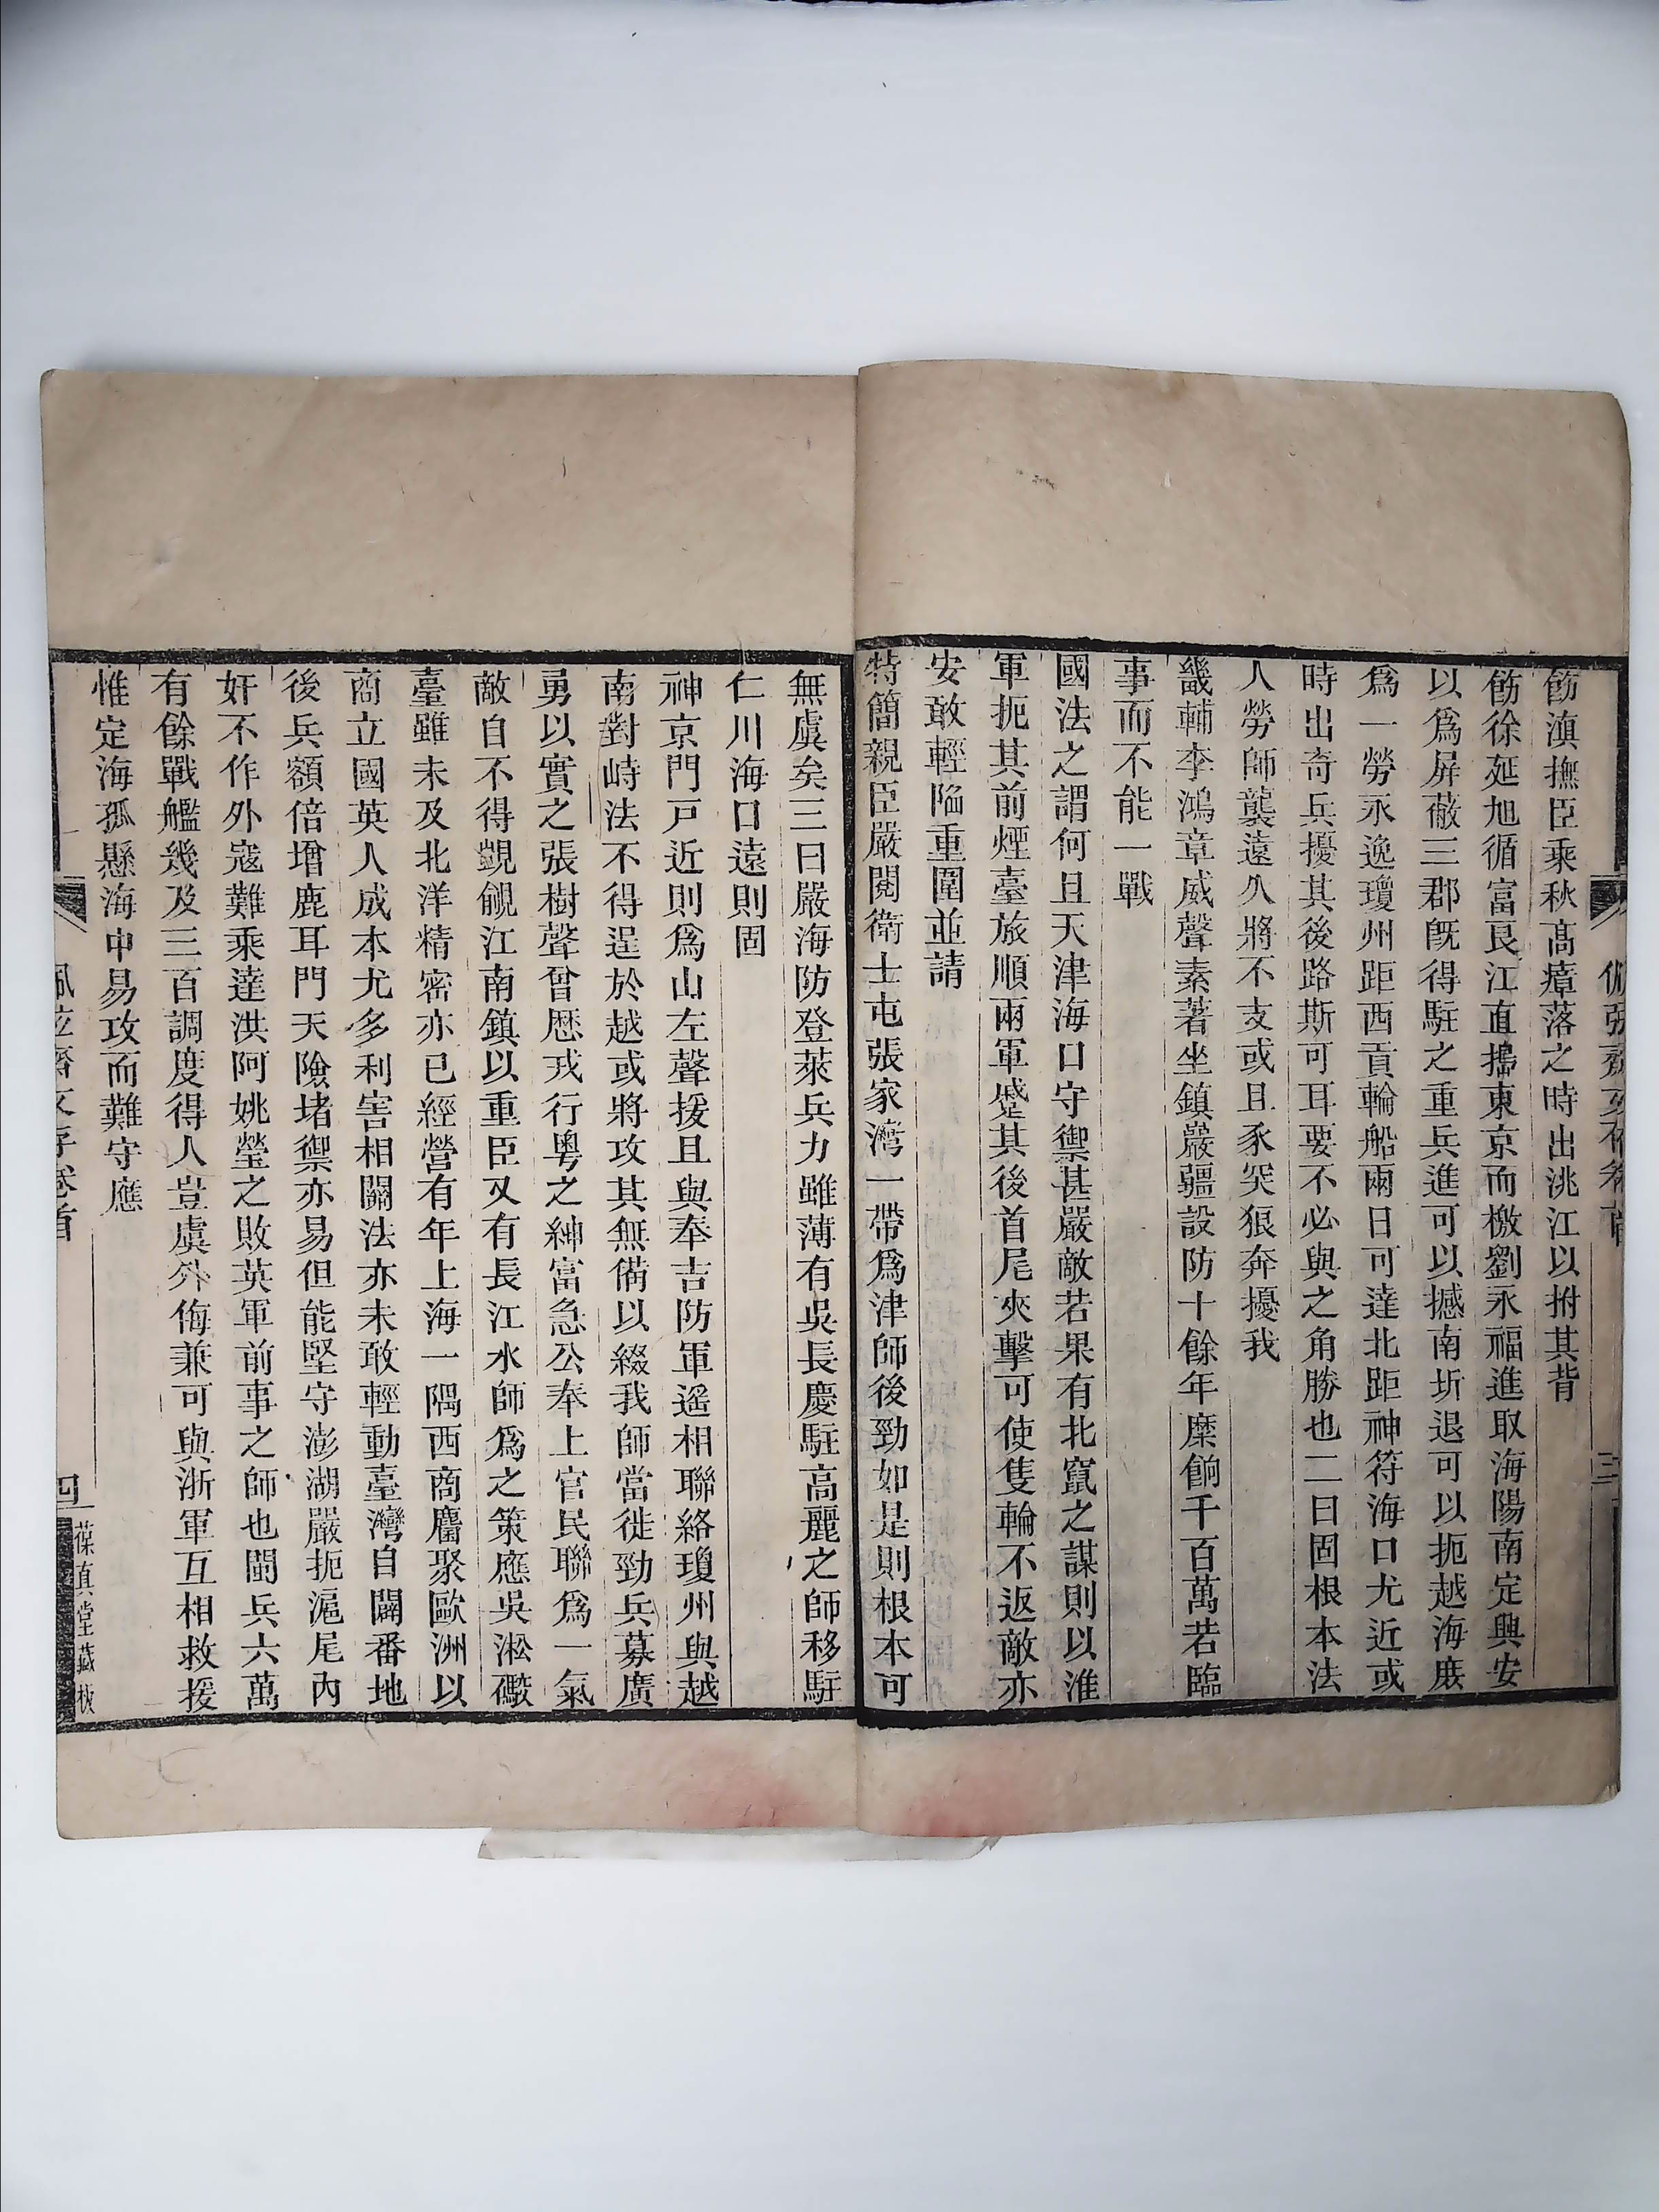 飭滇撫臣乘秋高瘴落之時出洮江以拊其背
飭徐延旭循富良江直搗東京而檄劉永福進取海陽南定興安
以爲屏蔽三郡既得駐之重兵進可以撼南圻退可以扼越海庶
爲一勞永逸瓊州距西貢輪船兩日可達北距神符海口尤近或
時出奇兵擾其後路斯可耳要不必與之角勝也二曰固根本法
人勞師襲遠久將不支或且豕突狼奔擾我
畿輔李鴻章威聲素著坐鎮嚴疆設防十餘年糜餉千百萬若臨
事而不能一戰
國法之謂何且天津海口守禦甚嚴敵若果有北竄之謀則以淮
軍扼其前煙臺旅順兩軍蹙其後首尾夾擊可使隻輪不返敵亦
安敢輕陷重圍並請
特簡親臣嚴閱衛士屯張家灣一帶爲津師後勁如是則根本可
無虞矣三曰嚴海防登萊兵力雖薄有吳長慶駐高麗之師移駐
仁川海口遠則固
神京門戸近則爲山左聲援且與奉吉防軍遥相聯絡瓊州與越
南對峙法不得逞於越或將攻其無備以綴我師當徙勁兵募廣
勇以實之張樹聲曾歴戎行粵之紳富急公奉上官民聯爲一氣
敵自不得覬覦江南鎮以重臣又有長江水師爲之策應吳淞礮
臺雖未及北洋精密亦已經營有年上海一隅西商麕聚歐洲以
商立國英人成本尤多利害相關法亦未敢輕動臺灣自闢番地
後兵額倍增鹿耳門天險堵禦亦易但能堅守澎湖嚴扼滬尾內
奸不作外寇難乘達洪阿姚瑩之敗英軍前事之師也閩兵六萬
有餘戰艦幾及三百調度得人豈虞外侮兼可與浙軍互相救援
惟定海孤懸海中易攻而難守應
佩弦齋文存卷首
四
葆真堂藏板